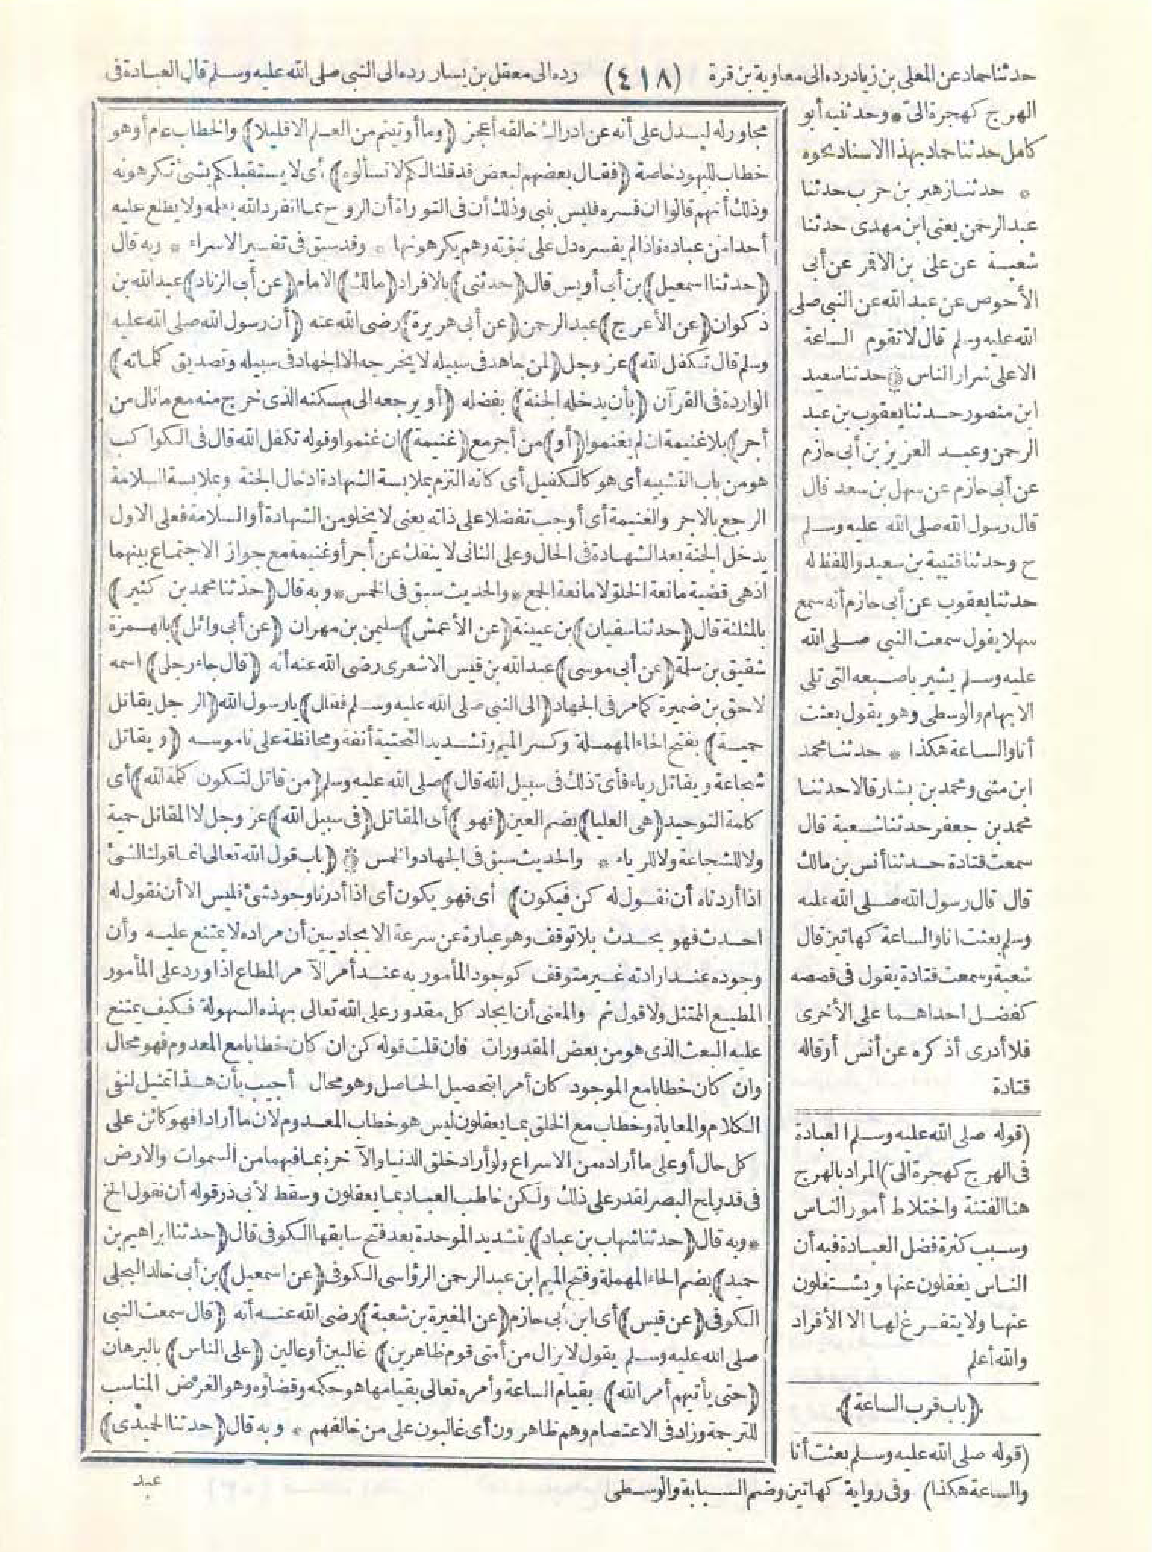 حدثنا حماد عن المعلى بن زياد رده الى معاوية بن قرة (٤١٨) رده الى معقل بن يسار رده الى النبي صلى الله عليه وسلم قال العبادة فى
الهرج كهجرة الىّ * وحدثنيه أبو
كامل حدثنا حماد بهذا الاسناد نحوه
* حدثنا زهير بن حرب حدثنا
عبد الرحمن يعنى ابن مهدى حدثنا
شعبة عن على بن الاقمر عن أبى
الأحوص عن عبد الله عن النبي صلى
الله عليه وسلم قال لا تقوم الساعة
الا على شرار الناس * حدثنا سعيد
ابن منصور حدثنا يعقوب بن عبد
الرحمن وعبد العزيز بن أبى حازم
عن أبى حازم عن سهل بن سعد قال
قال رسول الله صلى الله عليه وسلم
ح وحدثنا قتيبة بن سعيد واللفظ له
حدثنا يعقوب عن أبى حازم أنه سمع
سهلا يقول سمعت النبي صلى الله
عليه وسلم يشير باصبعه التى تلى
الابهام والوسطى وهو يقول بعثت
أنا والساعة هكذا * حدثنا محمد
ابن مثنى ومحمد بن بشار قالا حدثنا
محمد بن جعفر حدثنا شعبة قال
سمعت قتادة حدثنا أنس بن مالك
قال قال رسول الله صلى الله عليه
وسلم بعثت انا والساعة كهاتين قال
شعبة وسمعت قتادة يقول فى قصصه
كفضل احداهما على الأخرى
فلا أدرى أذكره عن أنس أو قاله
قتادة
(قوله صلى الله عليه وسلم العبادة
فى الهرج كهجرة الىّ) المراد بالهرج
هنا الفتنة واختلاط أمور الناس
وسبب كثرة فضل العبادة فيه أن
الناس يغفلون عنها ويشتغلون
عنها ولا يتفرغ لها الا الأفراد
والله أعلم
(باب قرب الساعة)
(قوله صلى الله عليه وسلم بعثت أنا
والساعة هكذا) وفى رواية كهاتين وضم السبابة والوسطى
مجاور له ليدل على أنه عن ادراك خالقه أعجز (وما أوتيتم من العلم الا قليلا) والخطاب عام أو هو
خطاب لليهود خاصة (فقال بعضهم لبعض قد قلنا لكم لا تسألوه) أى لا يستقبلكم بشئ تكرهونه
وذلك أنهم قالوا ان فسره فليس بنبى وذلك أن فى التوراة أن الروح مما انفرد الله بعلمه ولا يطلع عليه
أحدا من عباده فاذا لم يفسره دل على نبوته وهم يكرهونها * وقد سبق فى تفسير الاسراء * وبه قال
(حدثنا اسمعيل) بن أبى أويس قال (حدثنى) بالافراد (مالك) الامام (عن أبى الزناد) عبد الله بن
ذكوان (عن الأعرج) عبد الرحمن (عن أبى هريرة) رضى الله عنه (أن رسول الله صلى الله عليه
وسلم قال تكفل الله) عز وجل (لمن جاهد فى سبيله لا يخرجه الا الجهاد فى سبيله وتصديق كلماته)
الواردة فى القرآن (بأن يدخله الجنة) بفضله (أو يرجعه الى مسكنه الذى خرج منه مع ما نال من
أجر) بلا غنيمة ان لم يغنموا (أو) من أجر مع (غنيمة) ان غنموا وقوله تكفل الله قال فى الكواكب
هو من باب التشبيه أى هو كالكفيل أى كانه التزم بملابسة الشهادة ادخال الجنة وبملابسة السلامة
الرجع بالاجر والغنيمة أى أوجب تفضلا على ذاته يعنى لا يخلو من الشهادة أو السلامة فعلى الاول
يدخل الجنة بعد الشهادة فى الحال وعلى الثانى لا ينفك عن أجر أو غنيمة مع جواز الاجتماع بينهما
اذ هى قضية مانعة الخلو لا مانعة الجمع * والحديث سبق فى الخمس * وبه قال (حدثنا محمد بن كثير)
بالمثلثة قال (حدثنا سفيان) بن عيينة (عن الأعمش) سليمن بن مهران (عن أبى وائل) بالهمزة
شقيق بن سلمة (عن أبى موسى) عبد الله بن قيس الاشعرى رضى الله عنه أنه (قال جاء رجل) اسمه
لاحق بن ضميره كما مر فى الجهاد (الى النبي صلى الله عليه وسلم فقال) يا رسول الله (الرجل يقاتل
حمية) بفتح الحاء المهملة وكسر الميم وتشديد التحتية أنفة ومحافظة على ناموسه (ويقاتل
شجاعة ويقاتل رياء فأى ذلك فى سبيل الله قال) صلى الله عليه وسلم (من قاتل لتكون كلمة الله) أى
كلمة التوحيد (هى العليا) بضم العين (فهو) أى المقاتل (فى سبيل الله) عز وجل لا المقاتل حمية
ولا للشجاعة ولا للرياء * والحديث سبق فى الجهاد والخمس * (باب قول الله تعالى انما قولنا لشئ
اذا أردناه أن نقول له كن فيكون) أى فهو يكون أى اذا أردنا وجود شئ فليس الا أن نقول له
احدث فهو يحدث بلا توقف وهو عبارة عن سرعة الايجاد يبين أن مراده لا يمتنع عليه وأن
وجوده عند ارادته غير متوقف كوجود المأمور به عند أمر الآمر المطاع اذا ورد على المأمور
المطيع الممتثل ولا قول ثم والمعنى أن ايجاد كل مقدور على الله تعالى بهذه السهولة فكيف يمتنع
عليه البعث الذى هو من بعض المقدورات فان قلت قوله كن ان كان خطابا مع المعدوم فهو محال
وان كان خطابا مع الموجود كان أمرا بتحصيل الحاصل وهو محال أجيب بأن هذا تمثيل لنفى
الكلام والمعاياة وخطاب مع الخلق بما يعقلون ليس هو خطاب المعدوم لان ما أراد فهو كائن على
كل حال أو على ما أراده من الاسراع ولو أراد خلق الدنيا والآخرة بما فيهما من السموات والارض
فى قدر لمح البصر لقدر على ذلك ولكن خاطب العباد بما يعقلون وسقط لأبى ذر قوله أن نقول الخ
* وبه قال (حدثنا شهاب بن عباد) بتشديد الموحدة بعد فتح سابقها الكوفى قال (حدثنا ابراهيم بن
حميد) بضم الحاء المهملة وفتح الميم ابن عبد الرحمن الرؤاسى الكوفى (عن اسمعيل) بن أبى خالد البجلى
الكوفى (عن قيس) أى ابن أبى حازم (عن المغيرة بن شعبة) رضى الله عنه أنه (قال سمعت النبي
صلى الله عليه وسلم يقول لا يزال من أمتى قوم ظاهرين) غالبين أو عالين (على الناس) بالبرهان
(حتى يأتيهم أمر الله) بقيام الساعة وأمره تعالى بقيامها هو حكمه وقضاؤه وهو الغرض المناسب
للترجمة وزاد فى الاعتصام وهم ظاهرون أى غالبون على من خالفهم * وبه قال (حدثنا الحميدى)
عبد